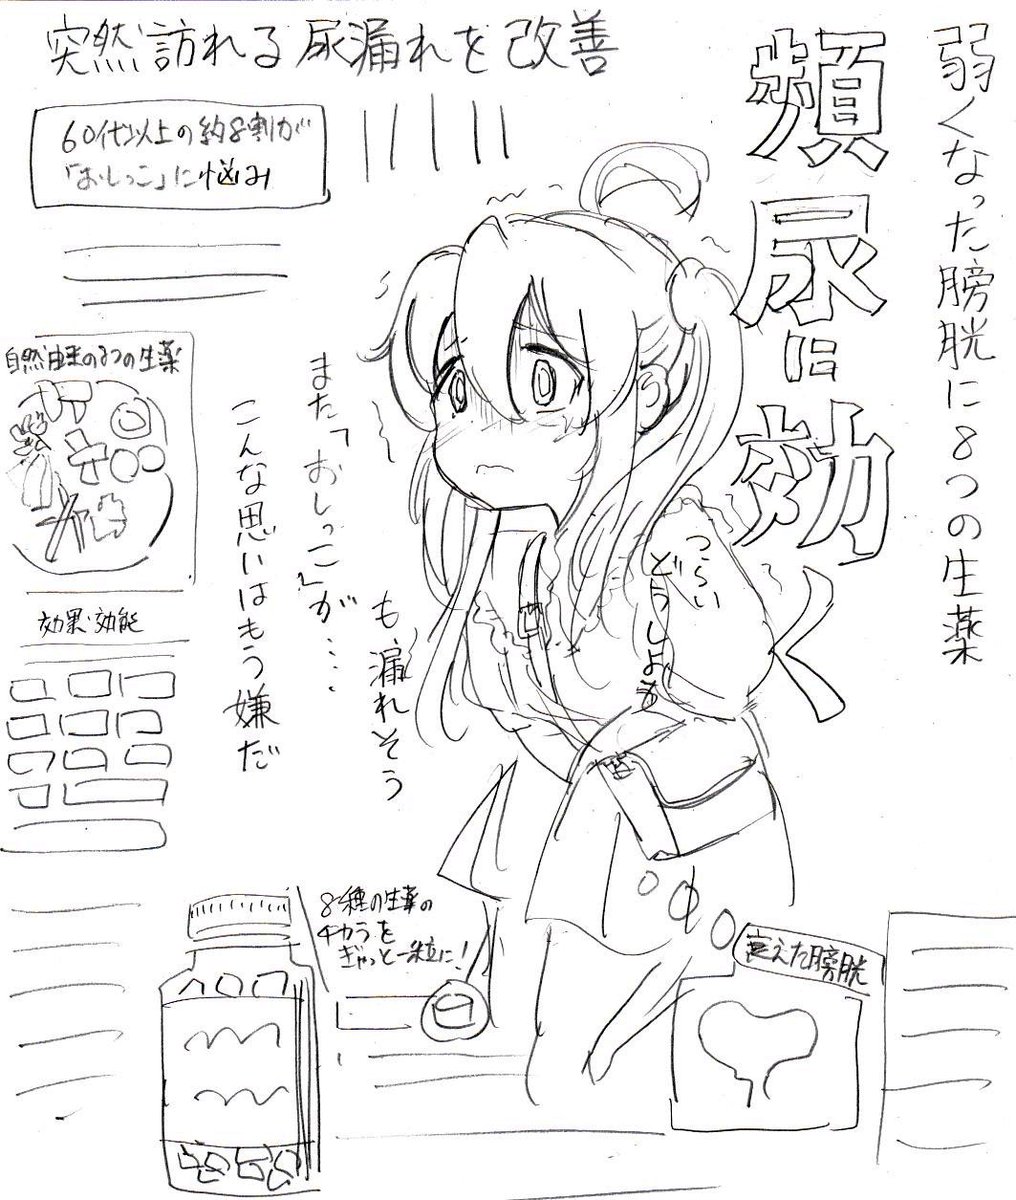 突然訪れる尿漏れを改善
弱くなった膀胱に8つの生薬
頻尿に効く
60代以上の約8割が
「おしっこ」に悩み
自然由来の8つの生薬
また「おしっこ」が・・・・
も、漏れそう
こんな思いはもう嫌だ
つらい
どうしよう
効果・効能
8種の生薬の
チカラを
ぎゅっと一粒に!
衰えた膀胱